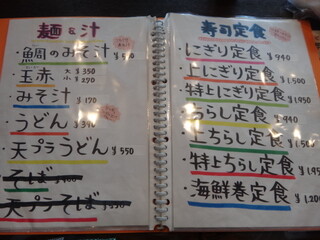 麺&汁
・鯛のみそ汁 ¥550
・玉赤 大 ¥350
小 ¥270
・みそ汁 ¥170
・うどん
・天プラうどん ¥550
・そば
・天プラそば
寿司定食
・にぎり定食 ¥940
・上にぎり定食 ¥1,500
・特上にぎり定食 ¥1,950
・ちらし定食 ¥940
・上ちらし定食
・特上ちらし定食
・海鮮巻定食 ¥1,200